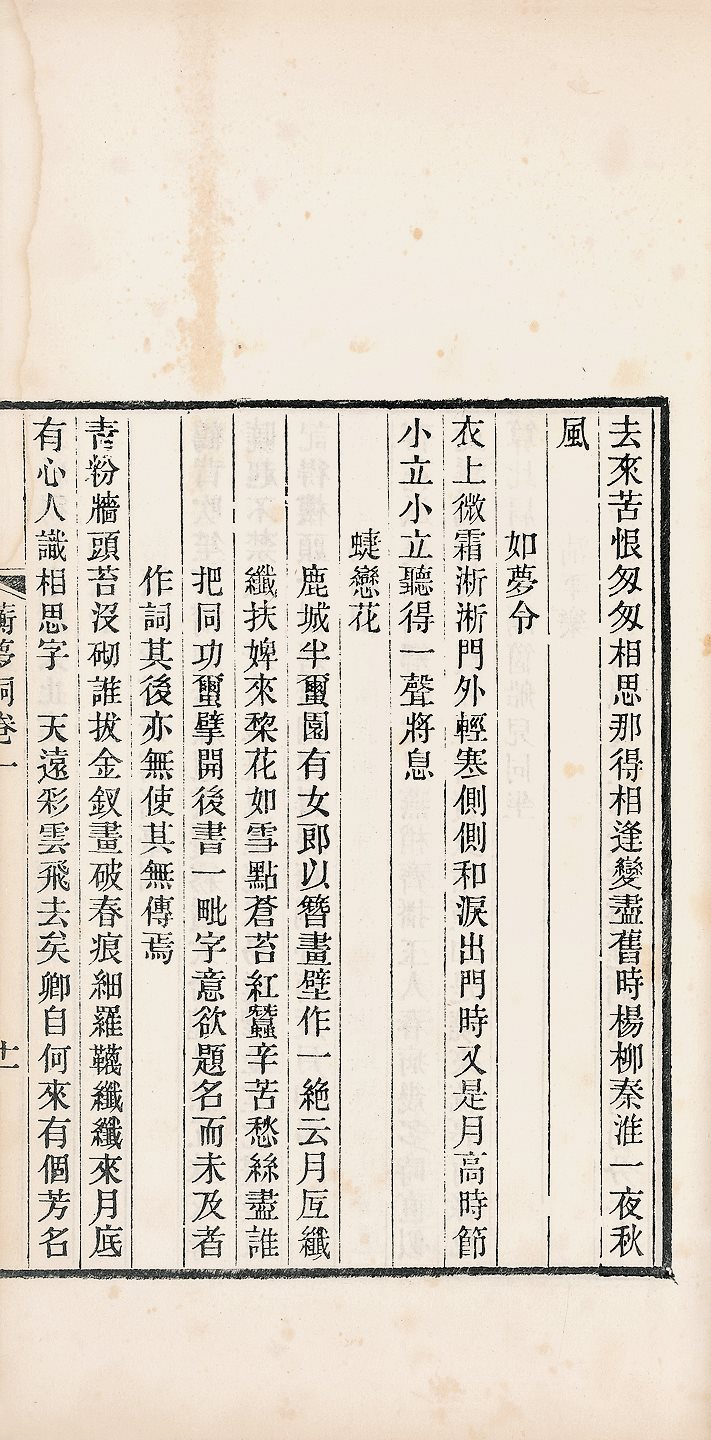 去來苦恨匆匆相思那得相逢變盡舊時楊柳秦淮一夜秋
風
如夢令
衣上微霜淅淅門外輕寒側側和淚出門時又是月高時節
小立小立聽得一聲將息
蜨戀花
鹿城半璽園有女郎以簪畫壁作一絶云月互纖
纖扶婢來棃花如雪點蒼苔紅蠶辛苦愁絲盡誰
把同功璽擘開後書一毗字意欲題名而未及者
作詞其後亦無使其無傳焉
青粉牆頭苔沒砌誰拔金釵畫破春痕細羅韈纖纖來月底
有心人識相思字 天遠彩雲飛去矣卿自何來有個芳名
蘅夢詞卷一
十一